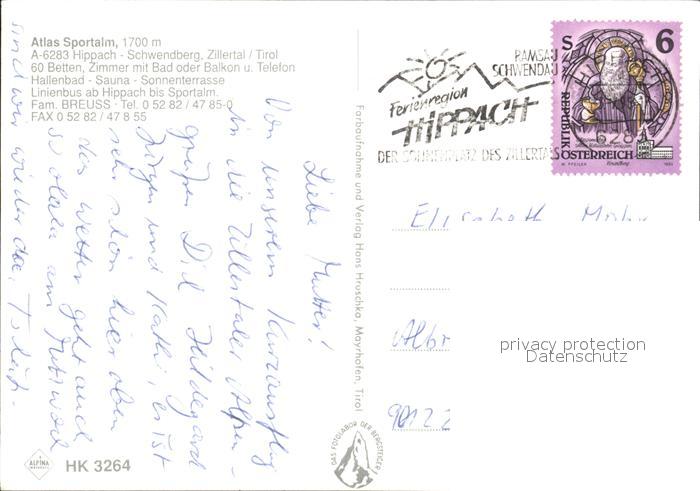 Atlas Sportalm, 1700 m
A-6283 Hippach - Schwendberg, Zillertal / Tirol
60 Betten, Zimmer mit Bad oder Balkon u. Telefon
Hallenbad - Sauna - Sonnenterrasse
Linienbus ab Hippach bis Sportalm.
Fam. BREUSS · Tel. 0 52 82 / 47 85-0
FAX 0 52 82 / 47 8 55
Liebe Mutter!
Von unserem Kurzausflug
in die Zillertaler Alpen -
grüßen Dich Hildegard
Jürgen und Kathi, es ist
sehr schön hier oben
das Wetter geht auch
so halb am Mittwoch
sind wir wieder da, Tschüß.
HK 3264
ALPINA
Farbaufnahme und Verlag Hans Hruschka, Mayrhofen, Tirol
DAS FOTOLABOR DER BERGSTEIGER
RAMSAU
SCHWENDAU
Ferienregion
HIPPACH
DER SONNENPLATZ DES ZILLERTALS
S 6
REPUBLIK
ÖSTERREICH
Elisabeth
Albr
90122
privacy protection
Datenschutz